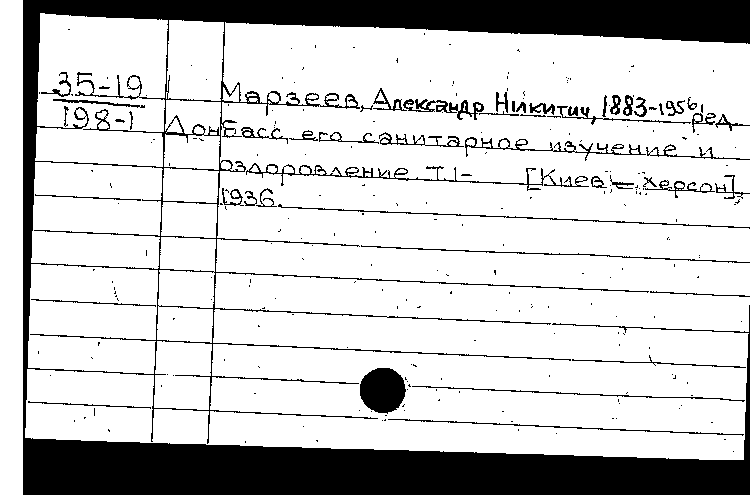 35-19
198-1
Марзеев, Александр Никитич, 1883-1956, ред.
Донбасс, его санитарное изучение и
оздоровление. Т. 1- [Киев — Херсон],
1936.